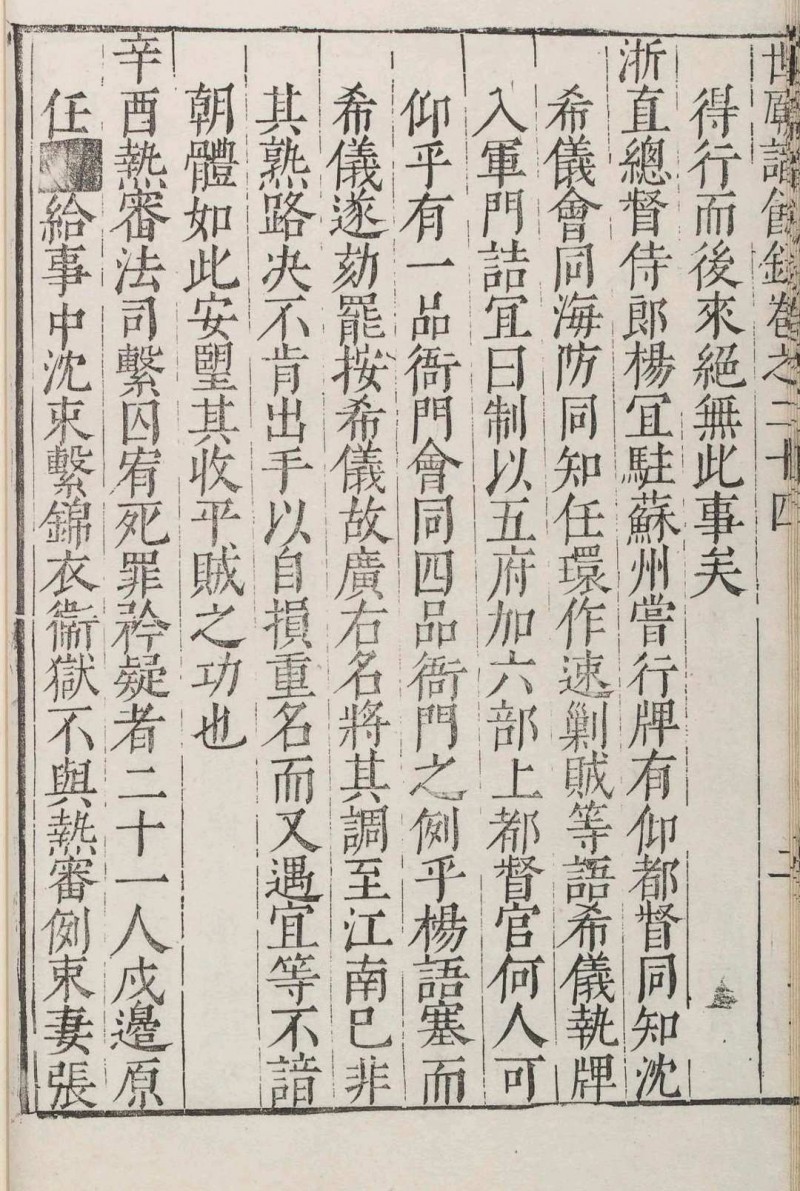 世廟識餘錄卷之二十四
二
得行而後來絕無此事矣
浙直總督侍郎楊冝駐蘇州嘗行牌有仰都督同知沈
希儀會同海防同知任環作速剿賊等語希儀執牌
入軍門詰冝曰制以五府加六部上都督官何人可
仰乎有一品衙門會同四品衙門之例乎楊語塞而
希儀遂劾罷按希儀故廣右名將其調至江南已非
其熟路决不肯出手以自損重名而又遇宜等不諳
朝體如此安望其收平賊之功也
辛酉熱審法司繫囚宥死罪矜疑者二十一人戍邊原
任給事中沈束繫錦衣衞獄不與熱審例束妻張